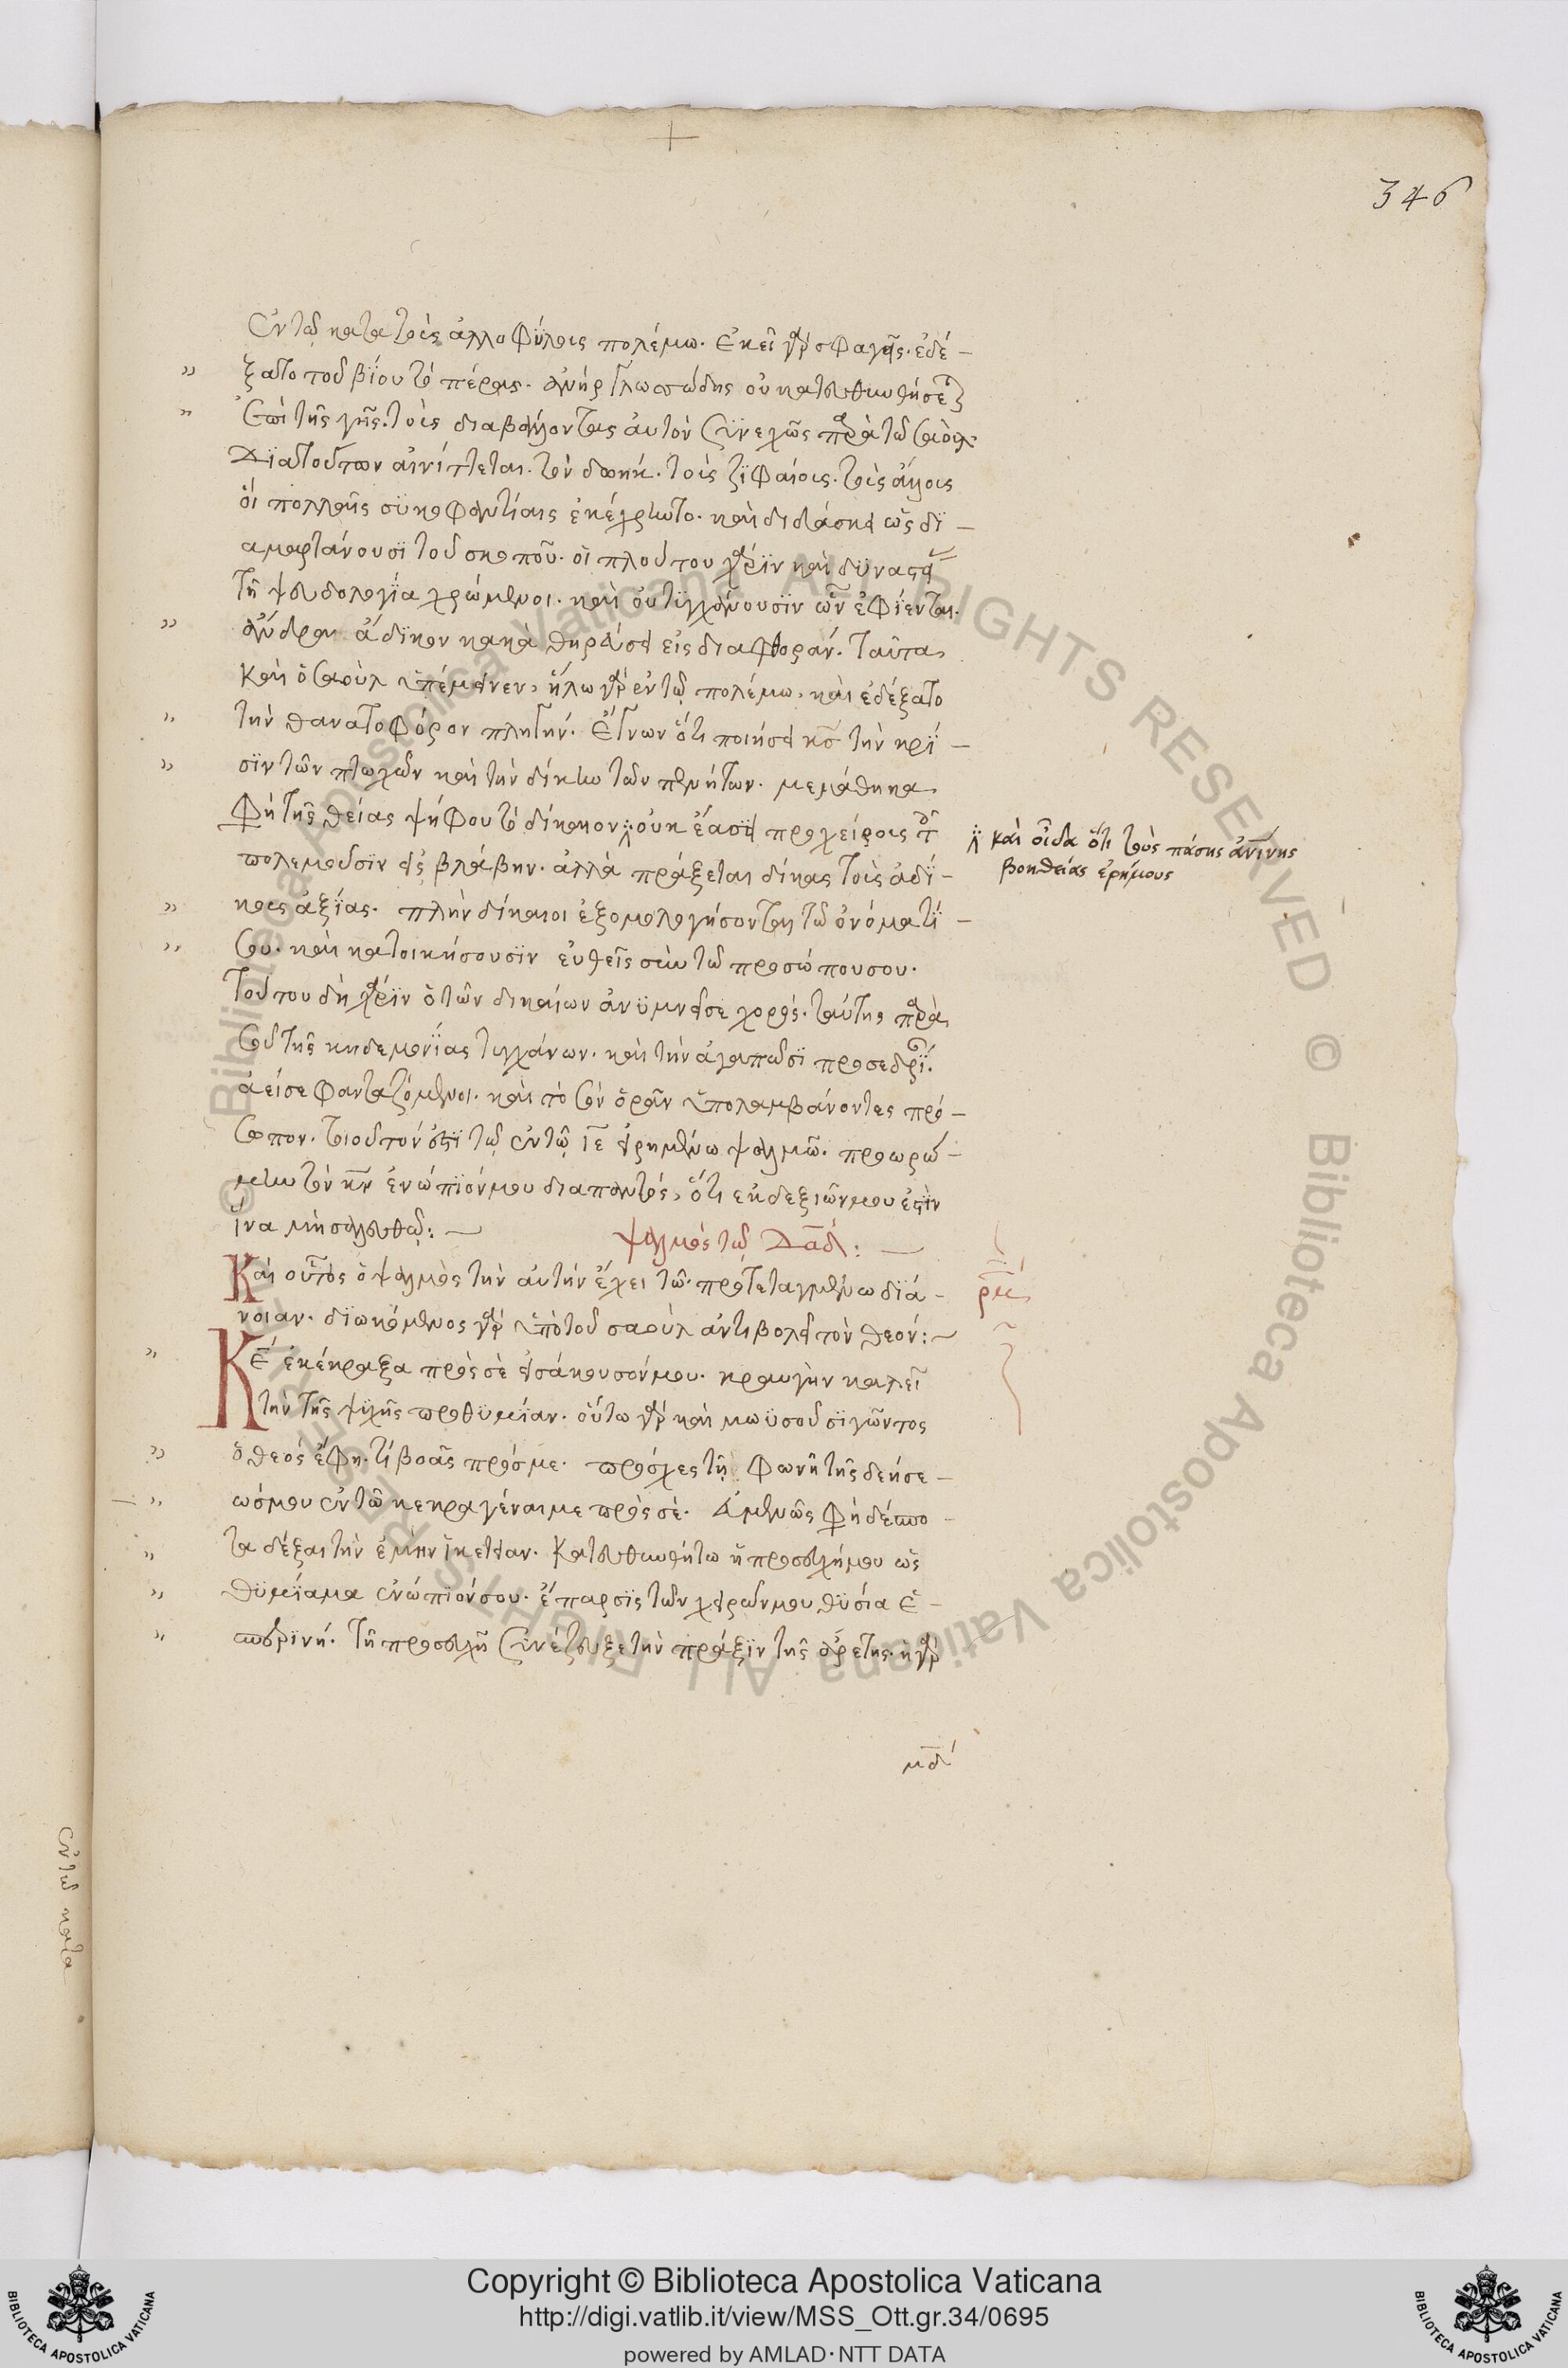 346
ἐν τῶ κατὰ τοὺς ἀλλοφύλους πολέμω. ἐκεῖ γὰρ σφαγῆς. ἐδέ-
ξατο τοῦ βίου τὸ πέρας. ἀνὴρ γλωσσώδης οὐ κατευθυνθήσετ
ἐπὶ τῆς γῆς. τοὺς διαβάλλοντας αὐτὸν συνεχῶς παρὰ τῶ σαοὺλ
διὰ τούτων αἰνίττεται. τὸν δωήκ. τοὺς ζιφαίους. τοὺς ἄλλους
οἳ πολλαῖς συκοφαντίαις ἐκέχρηντο. καὶ διδάσκει ὡς δι-
αμαρτάνουσι τοῦ σκοποῦ. οἱ πλούτου χάριν καὶ δυναστεί
τῆ ψευδολογία χρώμενοι. καὶ οὐ τυγχάνουσιν ὧν ἐφίενται.
ἄνδρα ἄδικον κακὰ θηρεύσει εἰς διαφθοράν. ταῦτα
καὶ ὁ σαοὺλ ὑπέμεινεν, ἥλω γὰρ ἐν τῶ πολέμω, καὶ ἐδέξατο
τὴν θανατοφόρον πληγήν. ἔγνων ὅτι ποιήσει κς τὴν κρί-
σιν τῶν πτωχῶν καὶ τὴν δίκην τῶν πενήτων. μεμάθηκα
φη τῆς θείας ψήφου τὸ δίκαιον οὐκ ἐάσει προχείρους τ
πολεμοῦσιν εἰς βλάβην. ἀλλὰ πράξεται δίκας τοὺς ἀδί-
κους ἀξίας. πλὴν δίκαιοι ἐξομολογήσονται τῶ ὀνόματί
σου. καὶ κατοικήσουσιν εὐθεῖς σὺν τῶ προσώπου σου.
τούτου δὴ χάριν ὁ τῶν δικαίων ἀνυμνεῖ σε χορός. ταύτης παρὰ
σοῦ τῆς κηδεμονίας τυγχάνων. καὶ τὴν ἀγαπῶσι προσεδρί.
ἀεί σε φανταζόμενοι. καὶ τὸ σὸν ὁρᾶν ὑπολαμβάνοντες πρό-
σωπον. τοιοῦτόν ἐστι τῶ ἐν τῶ ιε εἰρημένω ψαλμῶ. προωρώ-
μην τὸν κν ἐνώπιόν μου διαπαντός, ὅτι ἐκ δεξιῶν μου ἐστὶν
ἵνα μὴ σαλευθῶ:
ψαλμὸς τῶ δαδ:
Καὶ οὗτος ὁ ψαλμὸς τὴν αὐτὴν ἔχει τῶ προτεταγμένω διά-
νοιαν. διωκόμενος γὰρ ὑπὸ τοῦ σαοὺλ ἀντιβολεῖ τὸν θεόν:
Κε ἐκέκραξα πρὸς σὲ εἰσάκουσόν μου. κραυγὴν καλεῖ
τὴν τῆς ψυχῆς προθυμίαν. οὕτω γὰρ καὶ μωυσοῦ σιγῶντος
ὁ θεὸς ἔφη. τί βοᾶς πρός με. πρόσχες τῆ φωνῆ τῆς δεήσε-
ώς μου ἐν τῶ κεκραγέναι με πρὸς σέ. εὐμενῶς φη δέσπο-
τα δέξαι τὴν ἐμὴν ἱκετείαν. κατευθυνθήτω ἡ προσευχή μου ὡς
θυμίαμα ἐνώπιόν σου. ἔπαρσις τῶν χειρῶν μου θυσία ἑ-
σπερινή. τῆ προσευχῆ συνέζευξε τὴν πρᾶξιν τῆς ἀρετῆς. ἡ γὰρ
καὶ οἶδα ὅτι τοὺς πάσης ἀνίνης
βοηθείας ἐρήμους
ρμ
μδ
ἐν τῶ κατα
Copyright © Biblioteca Apostolica Vaticana
http://digi.vatlib.it/view/MSS_Ott.gr.34/0695
powered by AMLAD·NTT DATA
BIBLIOTECA APOSTOLICA VATICANA
BIBLIOTECA APOSTOLICA VATICANA
© Biblioteca Apostolica Vaticana ALL RIGHTS RESERVED
© Biblioteca Apostolica Vaticana ALL RIGHTS RESERVED